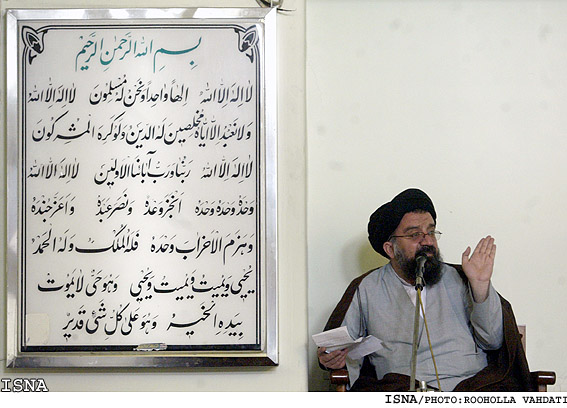 بسم الله الرحمن الرحیم
لا اله الا الله الهاً واحداً ونحن له مسلمون لا اله الا الله
ولا نعبد الا ایاه مخلصین له الدین ولو کره المشرکون
لا اله الا الله ربنا ورب آبائنا الاولین لا اله الا الله
وحده وحده وحده انجز وعده ونصر عبده واعز جنده
وهزم الاحزاب وحده فله الملک وله الحمد
یحیی ویمیت ویمیت ویحیی وهو حی لا یموت
بیده الخیر وهو علی کل شئ قدیر
ISNA
ISNA/PHOTO:ROOHOLLA VAHDATI